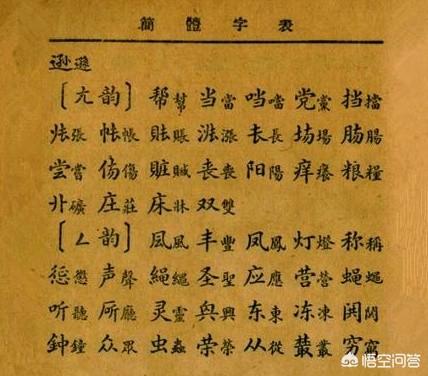 簡體字表
逊遜
〔尢韵〕帮幫 当當 噹 党黨 挡擋
张張 帐帳 账賬 涨漲 长長 场場 肠腸
尝嘗 伤傷 赃贓 丧喪 阳陽 痒癢 粮糧
卝礦 庄莊 床牀 双雙
〔ㄥ韵〕凨風 丰豐 凤鳳 灯燈 称稱
惩懲 声聲 绳繩 圣聖 应應 营營 蝇蠅
听聽 厅廳 灵靈 兴興 东東 冻凍
鈡鐘 众眾 虫蟲 荣榮 从從 叢 穷窮
悟空问答